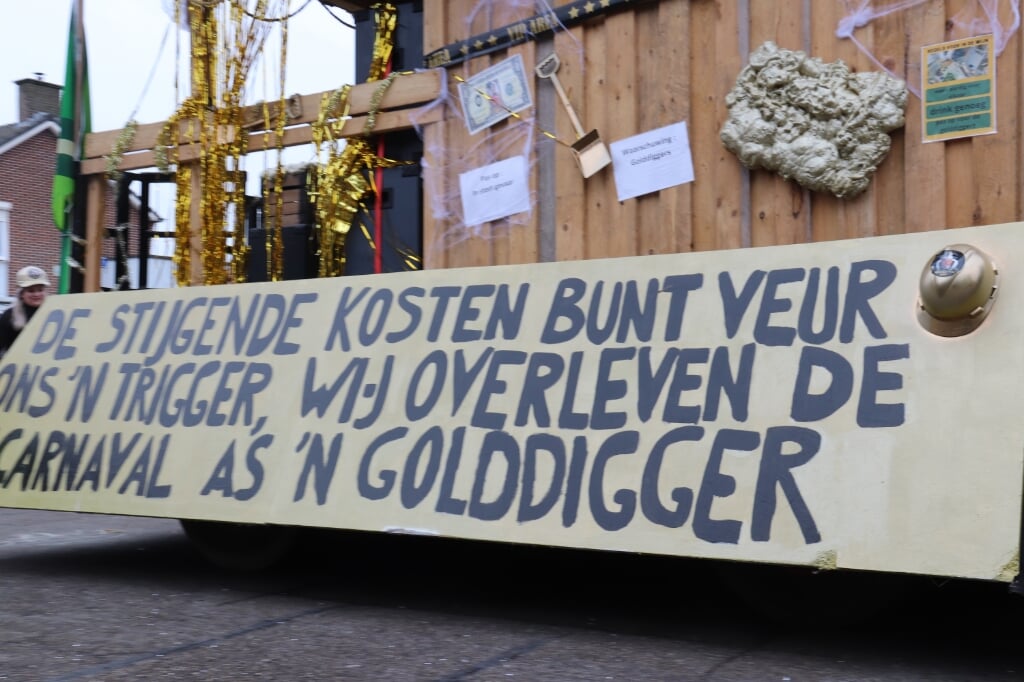 Pas op
Waarschuwing:
Golddiggers
drink genoeg
DE STIJGENDE KOSTEN BUNT VEUR
ONS 'N TRIGGER, WIJ OVERLEVEN DE
CARNAVAL AS 'N GOLDDIGGER